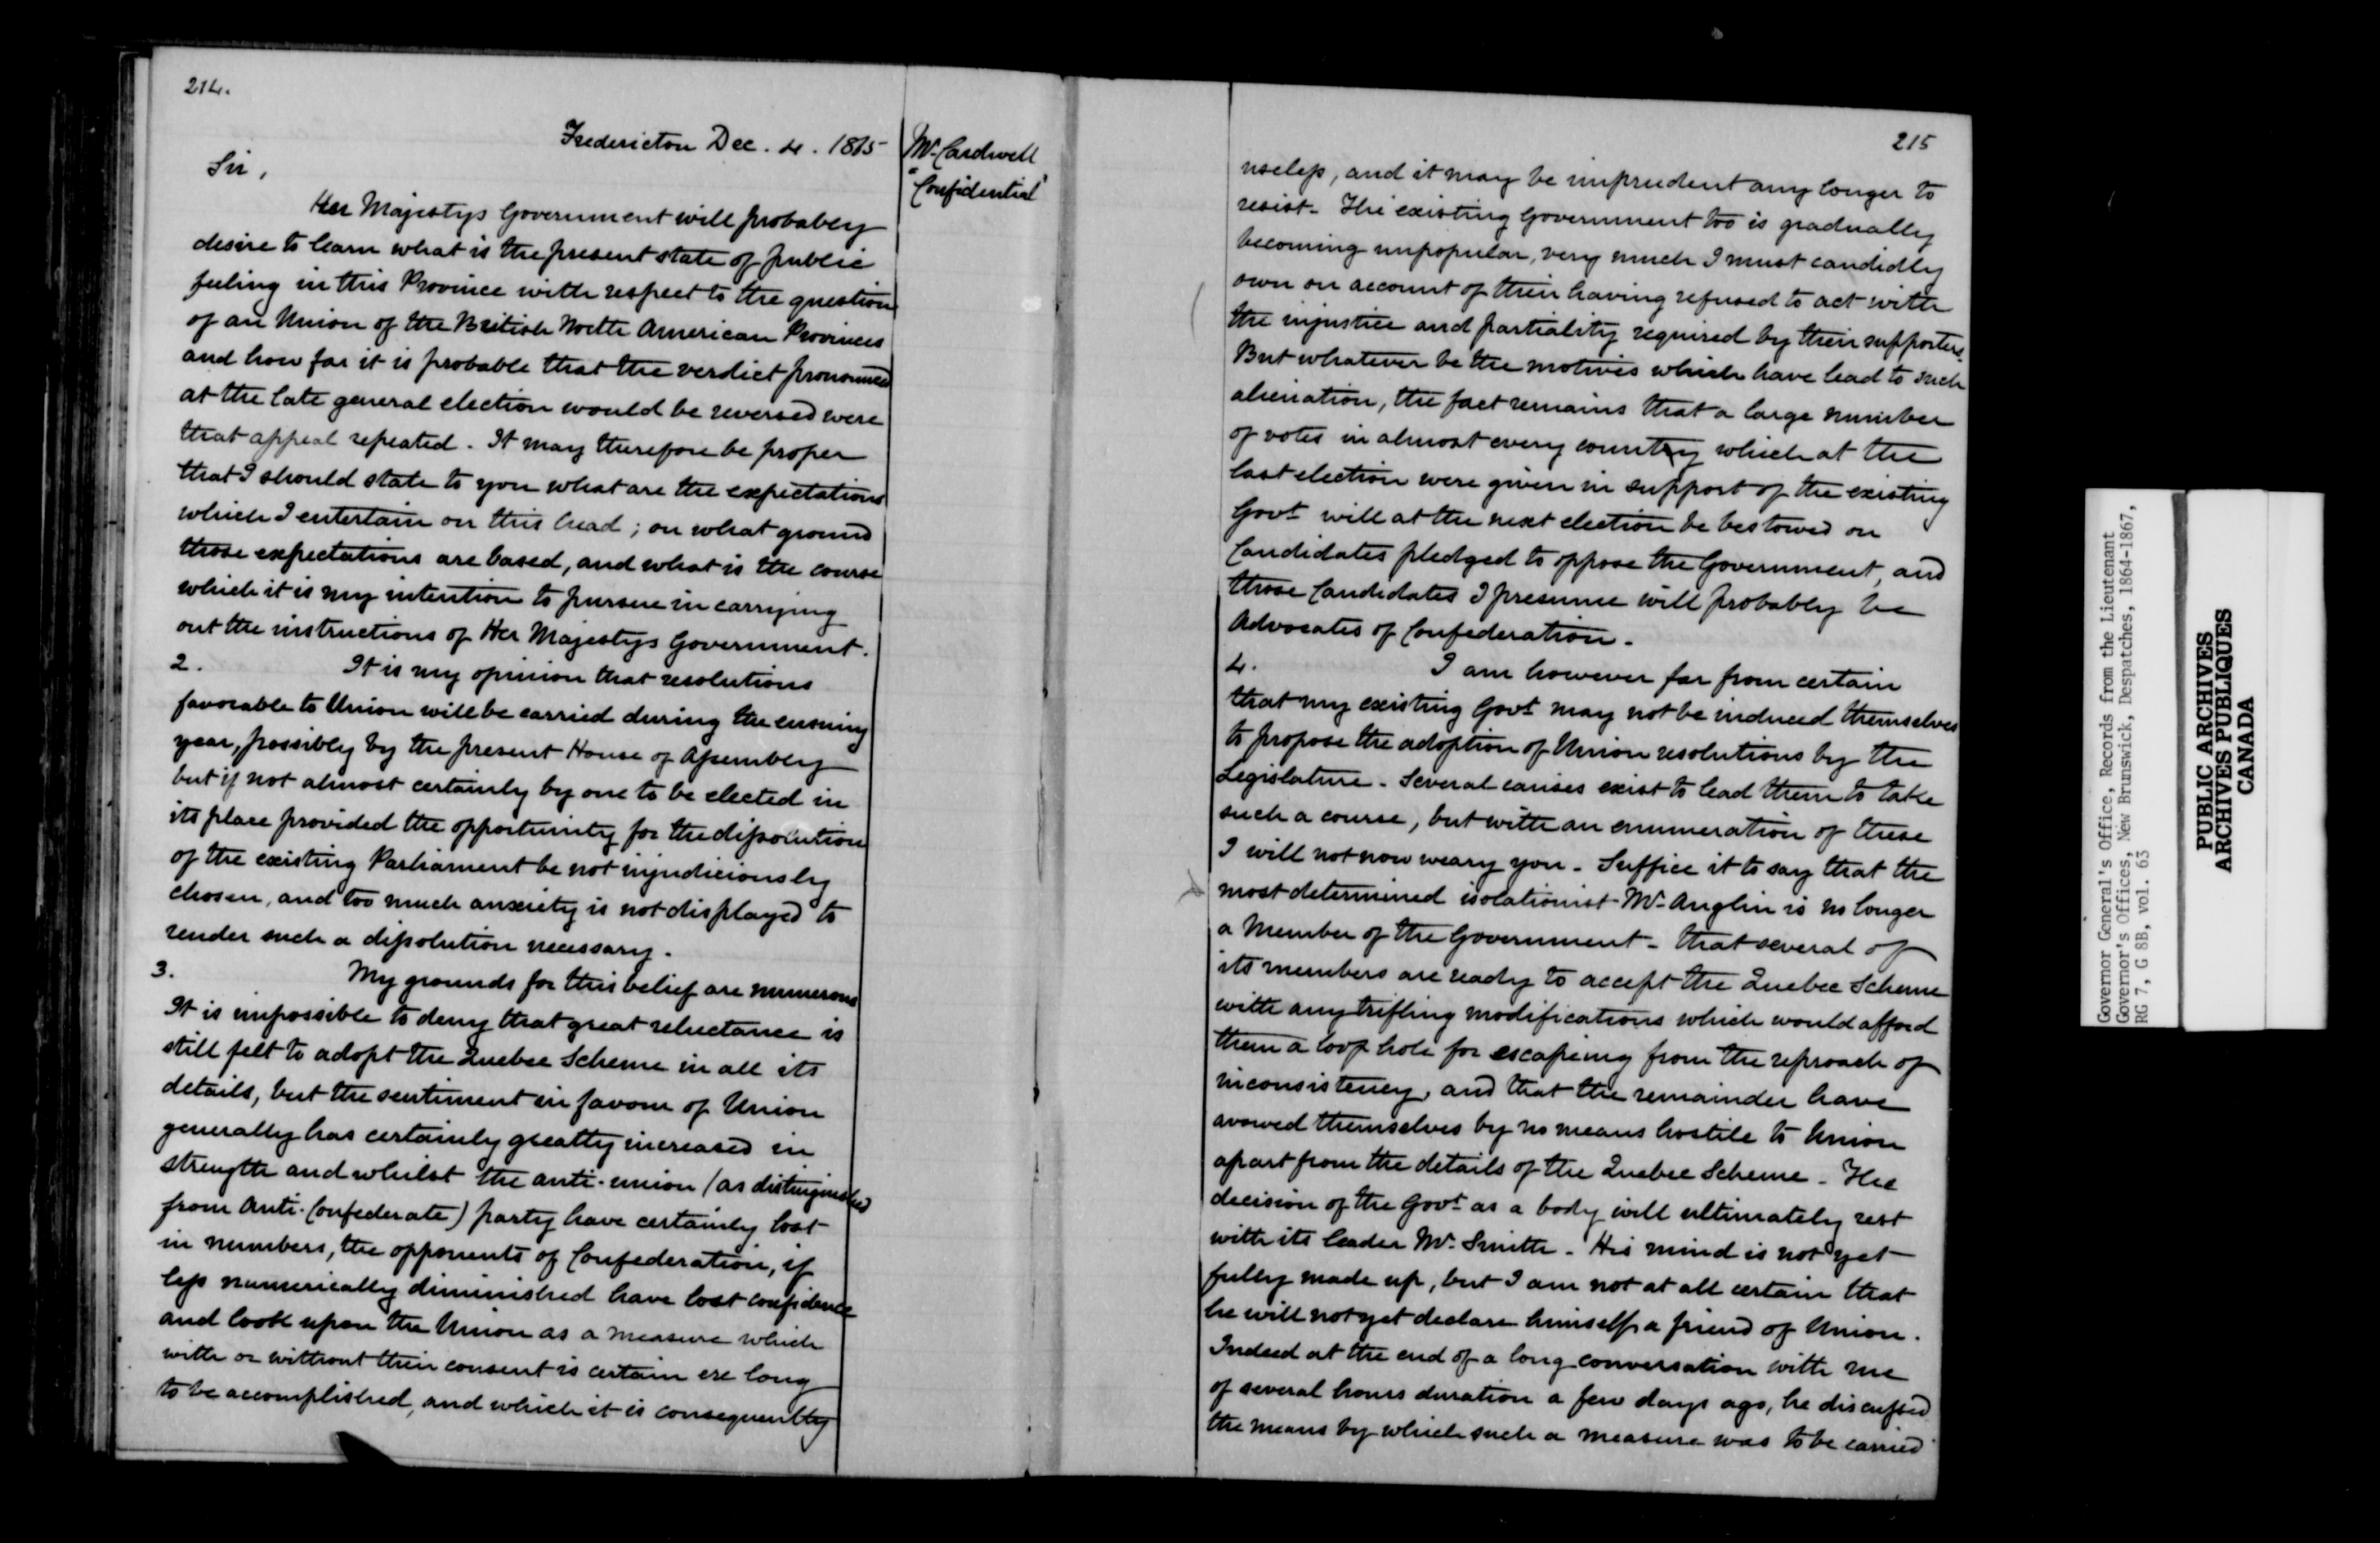 214.
Fredericton Dec. 4. 1865
Mr. Cardwell
"Confidential"
Sir,
Her Majestys Government will probably
desire to learn what is the present state of public
feeling in this Province with respect to the question
of an Union of the British North American Provinces
and how far it is probable that the verdict pronounced
at the late general election would be reversed were
that appeal repeated. It may therefore be proper
that I should state to you what are the expectations
which I entertain on this head; on what ground
those expectations are based, and what is the course
which it is my intention to pursue in carrying
out the instructions of Her Majestys Government.
2. It is my opinion that resolutions
favorable to Union will be carried during the ensuing
year, possibly by the present House of Assembly
but if not almost certainly by one to be elected in
its place provided the opportunity for the dissolution
of the existing Parliament be not injudiciously
chosen, and too much anxiety is not displayed to
render such a dissolution necessary.
3. My grounds for this belief are numerous
It is impossible to deny that great reluctance is
still felt to adopt the Quebec Scheme in all its
details, but the sentiment in favour of Union
generally has certainly greatly increased in
strength and whilst the anti-union (as distinguished
from Anti-Confederate) party have certainly lost
in numbers, the opponents of Confederation, if
less numerically diminished have lost confidence
and look upon the Union as a measure which
with or without their consent is certain ere long
to be accomplished, and which it is consequently
215
useless, and it may be imprudent any longer to
resist. The existing Government too is gradually
becoming unpopular, very much I must candidly
own on account of their having refused to act with
the injustice and partiality required by their supporters.
But whatever be the motives which have lead to such
alienation, the fact remains that a large number
of votes in almost every country which at the
last election were given in support of the existing
Govt. will at the next election be bestowed on
Candidates pledged to oppose the Government, and
those Candidates I presume will probably be
Advocates of Confederation.
4. I am however far from certain
that my existing Govt. may not be induced themselves
to propose the adoption of Union resolutions by the
Legislature. Several causes exist to lead them to take
such a course, but with an enumeration of these
I will not now weary you. Suffice it to say that the
most determined isolationist Mr. Anglin is no longer
a Member of the Government - that several of
its members are ready to accept the Quebec Scheme
with any trifling modifications which would afford
them a loop hole for escaping from the reproach of
inconsistency, and that the remainder have
avowed themselves by no means hostile to Union
apart from the details of the Quebec Scheme. The
decision of the Govt. as a body will ultimately rest
with its leader Mr. Smith. His mind is not yet
fully made up, but I am not at all certain that
he will not yet declare himself a friend of Union.
Indeed at the end of a long conversation with me
of several hours duration a few days ago, he discussed
the means by which such a measure was to be carried
Governor General's Office, Records from the Lieutenant
Governor's Offices, New Brunswick, Despatches, 1864-1867,
RG 7, G 8B, vol. 63
PUBLIC ARCHIVES
ARCHIVES PUBLIQUES
CANADA